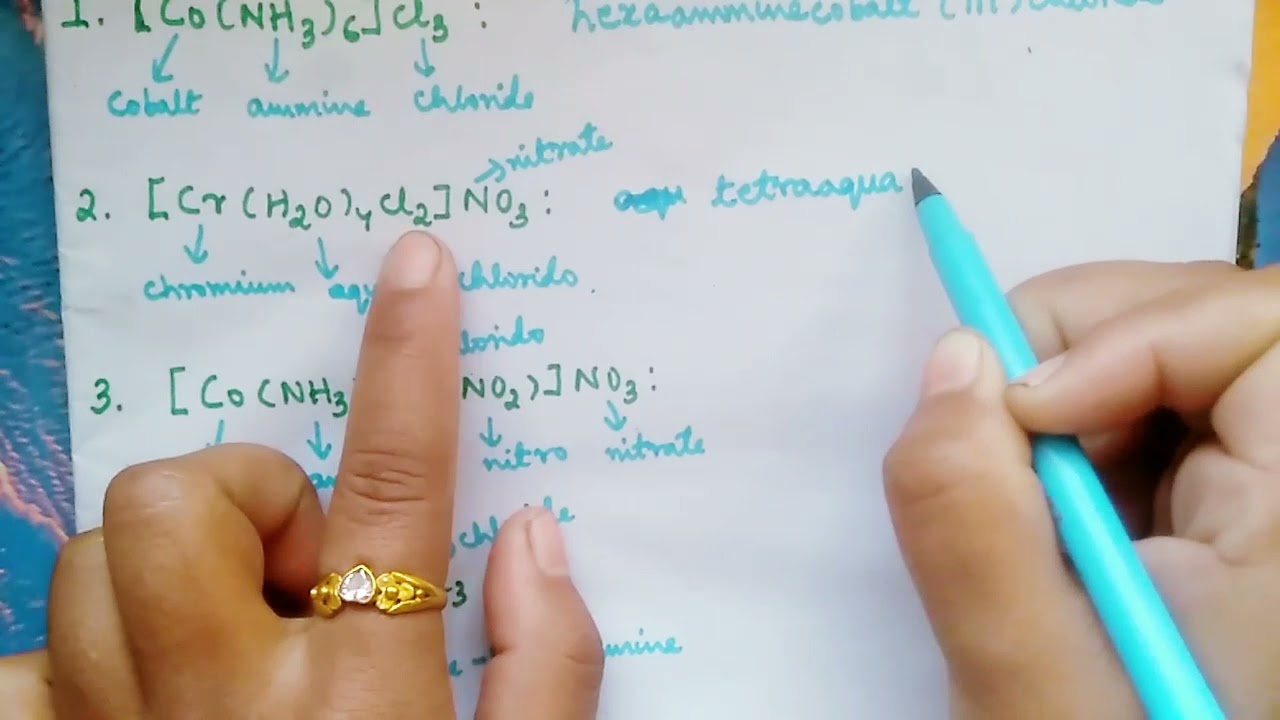 1. [Co(NH3)6]Cl3 : hexaamminecobalt (III)
cobalt ammine chloride
nitrate
2. [Cr(H2O)4Cl2]NO3: aqu tetraaqua
chromium aqu chlorido
lorido
3. [Co(NH3 NO2)]NO3:
nitro nitrate
-3